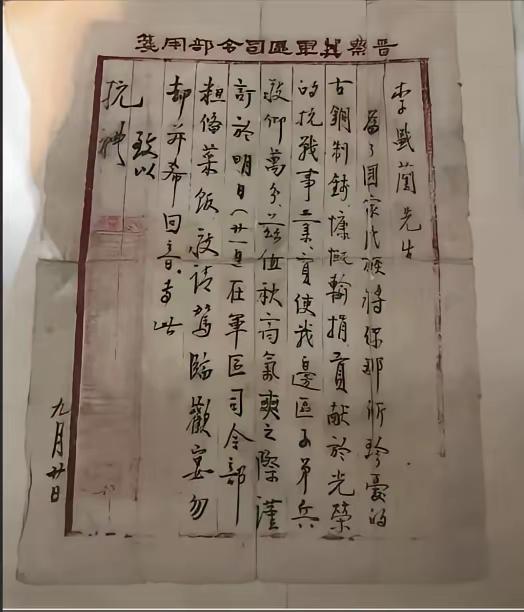 晋察冀軍區司令部用箋
李先生
為了國家民族將你那所珍愛的
古銅制錢慷慨輸捐貢献於光榮
的抗戰事業實使我邊區子弟兵
敬仰萬分茲值秋高氣爽之際謹
訂於明日(廿一日)在軍區司令部
粗俻菜飯敬請駕臨歡宴勿
却并希回音专此
致以
抗礼
九月廿日